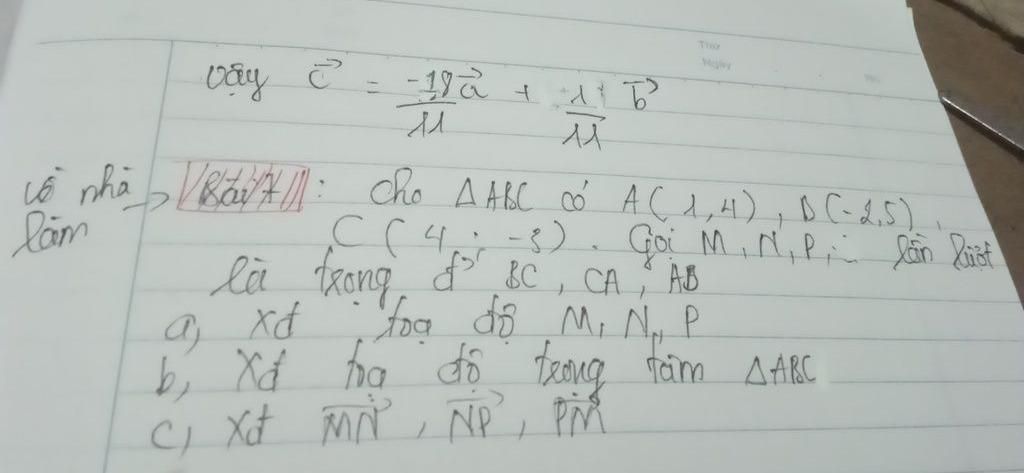 Thứ
Ngày
No.
Vậy c⃗ = -18/11 a⃗ + 1/11 b⃗
Về nhà làm → Bài 7 : Cho ΔABC có A(1,4), B(-2,5),
C(4; -3). Gọi M, N, P, lần lượt
là trọng đ' BC, CA, AB
a, Xđ toạ độ M, N, P
b, Xđ toạ độ trọng tâm ΔABC
c, Xđ MN⃗, NP⃗, PM⃗